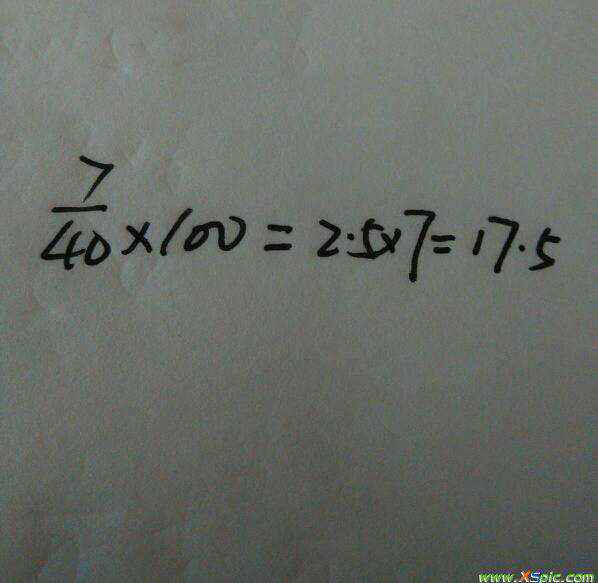 7/40×100=2.5×7=17.5
www.XSpic.com